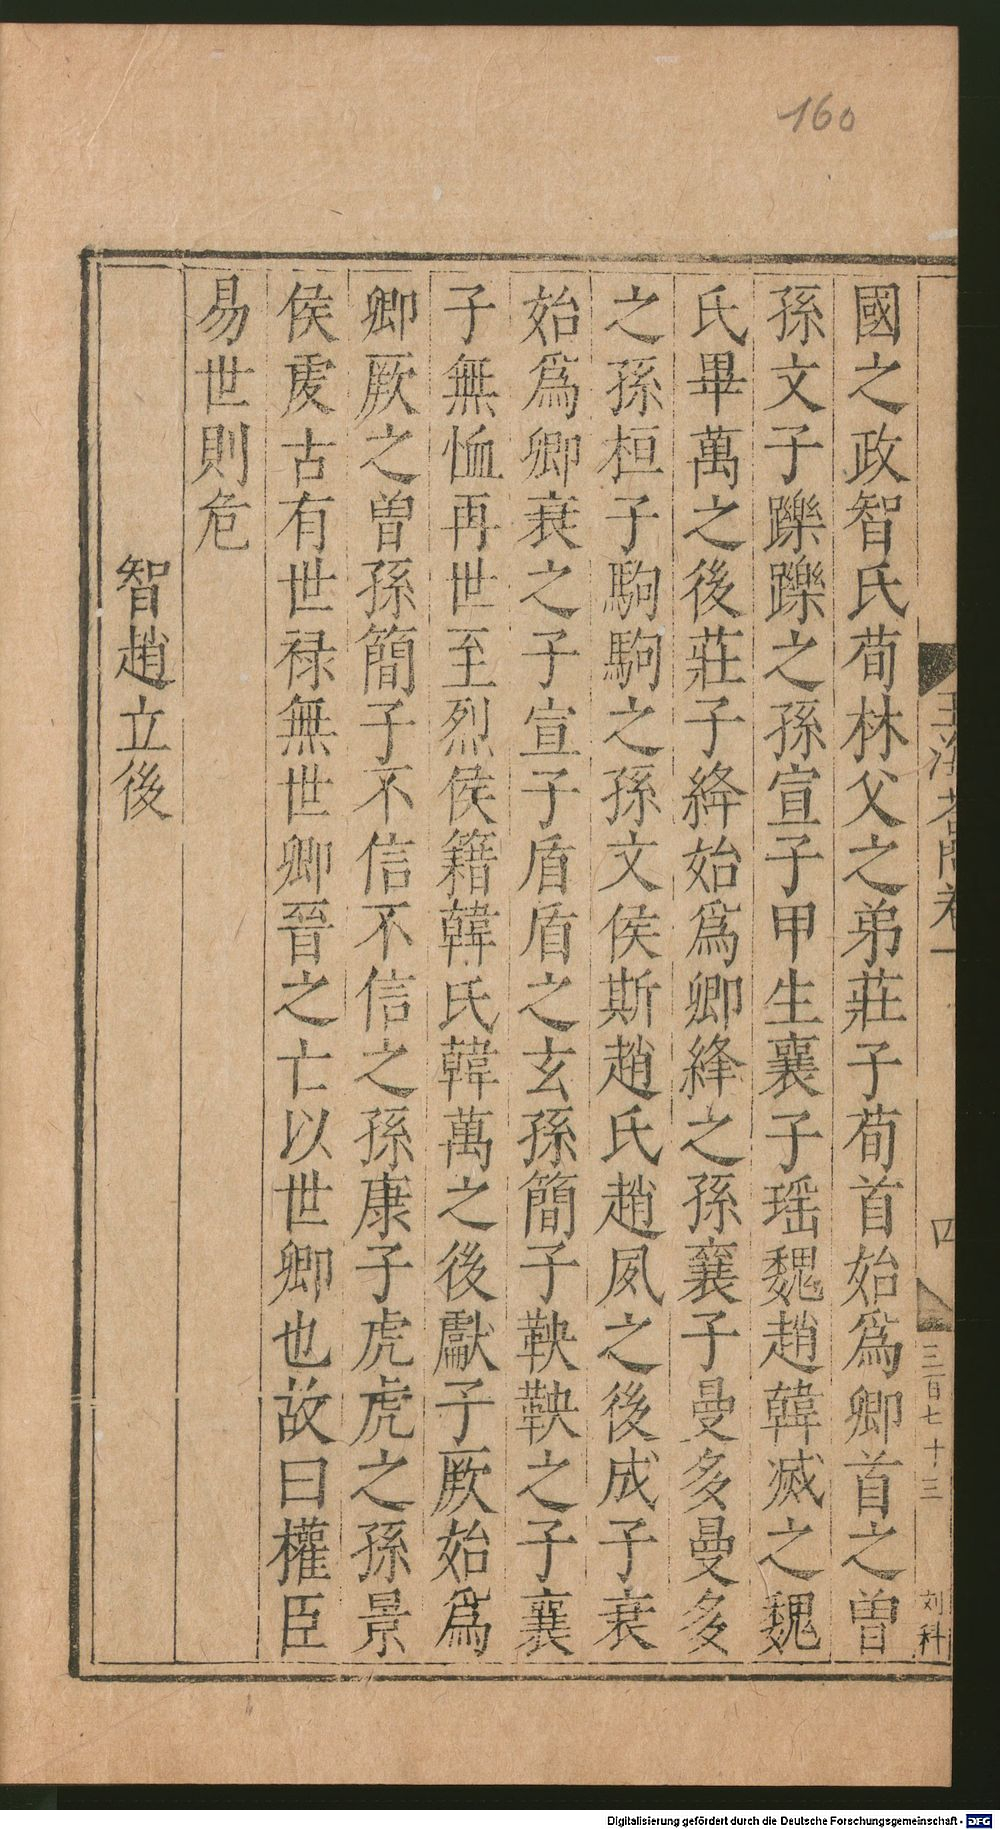 160
國之政智氏荀林父之弟莊子荀首始爲卿首之曽
孫文子躒躒之孫宣子甲生襄子瑶魏趙韓滅之魏
氏畢萬之後莊子絳始爲卿絳之孫襄子曼多曼多
之孫桓子駒駒之孫文侯斯趙氏趙夙之後成子衰
始爲卿衰之子宣子盾盾之玄孫簡子鞅鞅之子襄
子無恤再世至烈侯籍韓氏韓萬之後獻子厥始爲
卿厥之曽孫簡子不信不信之孫康子虎虎之孫景
侯虔古有世禄無世卿晉之亡以世卿也故曰權臣
易世則危
智趙立後
四
三百七十三
刘科
Digitalisierung gefördert durch die Deutsche Forschungsgemeinschaft - DFG